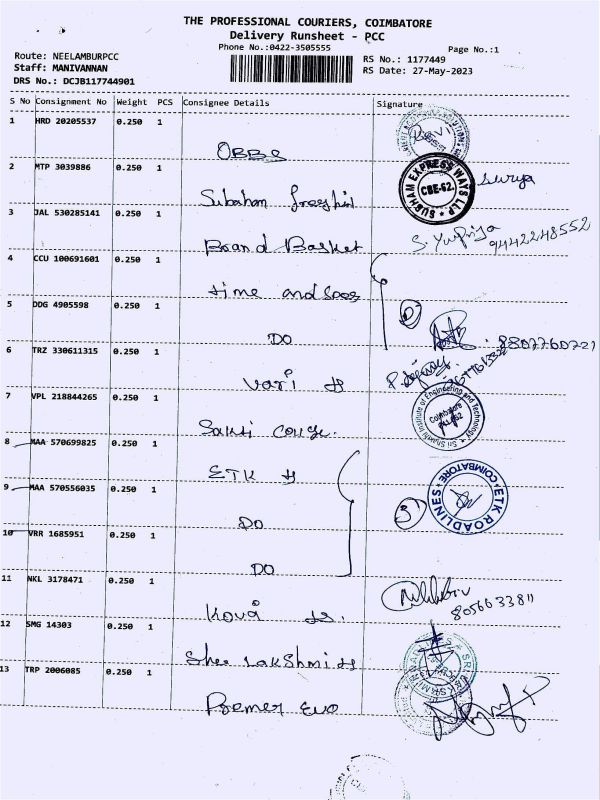 THE PROFESSIONAL COURIERS, COIMBATORE
Delivery Runsheet - PCC
Phone No.:0422-3505555
Page No.:1
Route: NEELAMBURPCC
Staff: MANIVANNAN
DRS No.: DCJB117744901
RS No.: 1177449
RS Date: 27-May-2023
S No Consignment No Weight PCS Consignee Details Signature
1 HRD 20205537 0.250 1
OBBS
2 MTP 3039886 0.250 1
SUBHAM EXPRESS WAYS LLP
CBE-62
Surya
Subaham
3 JAL 530285141 0.250 1
Brand Basket
9442248552
4 CCU 100691601 0.250 1
time and
5 DDG 4905598 0.250 1
DO
2
8807760221
6 TRZ 330611315 0.250 1
Vari
7 VPL 218844265 0.250 1
Sri Shakthi Institute of Engineering and Technology
Coimbatore
641 062
Sakti
8 MAA 570699825 0.250 1
ETK
ETK ROADLINES
COIMBATORE
9 MAA 570556035 0.250 1
DO
3
10 VRR 1685951 0.250 1
DO
11 NKL 3178471 0.250 1
8056633811
Kova
12 SMG 14303 0.250 1
Shee Lakshmi
13 TRP 2006085 0.250 1
Premer Evo